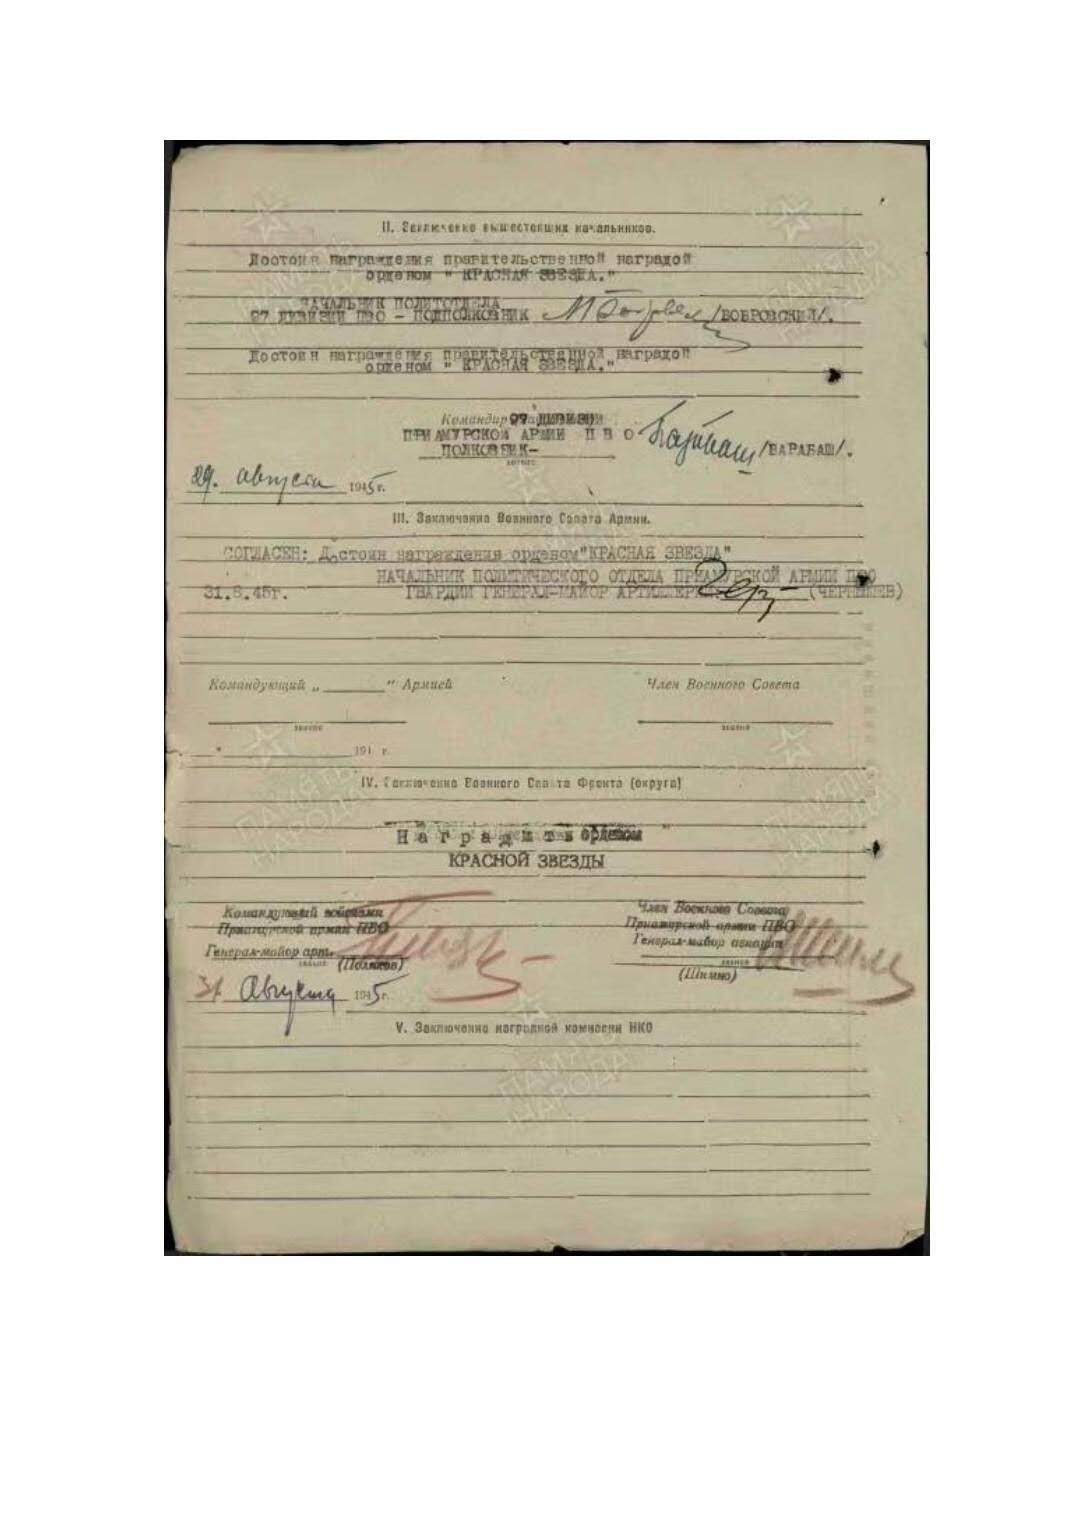 II. Заключение вышестоящих начальников.
Достоин награждения правительственной наградой
орденом " КРАСНАЯ ЗВЕЗДА."
НАЧАЛЬНИК ПОЛИТОТДЕЛА
97 ДИВИЗИИ ПВО - ПОДПОЛКОВНИК /БОБРОВСКИЙ/.
Достоин награждения правительственной наградой
орденом " КРАСНАЯ ЗВЕЗДА."
Командир 97 ДИВИЗИИ
ПРИАМУРСКОЙ АРМИИ П В О
ПОЛКОВНИК- Барабаш /БАРАБАШ/.
звание
29. августа 1945 г.
III. Заключение Военного Совета Армии.
СОГЛАСЕН: Достоин награждения орденом "КРАСНАЯ ЗВЕЗДА"
НАЧАЛЬНИК ПОЛИТИЧЕСКОГО ОТДЕЛА ПРИАМУРСКОЙ АРМИИ ПВО
31.8.45г. ГВАРДИИ ГЕНЕРАЛ-МАЙОР АРТИЛЛЕРИИ (ЧЕРНЫШЕВ)
Командующий „ " Армией Член Военного Совета
звание звание
" 194 г.
IV. Заключение Военного Совета Фронта (округа)
Наградить орденом
КРАСНОЙ ЗВЕЗДЫ
Командующий войсками Член Военного Совета
Приамурской армии ПВО Приамурской армии ПВО
Генерал-майор арт. Генерал-майор авиации
звание звание
(Поляков) (Шимко)
31 Августа 1945 г.
V. Заключение наградной комиссии НКО
ПАМЯТЬ
НАРОДА